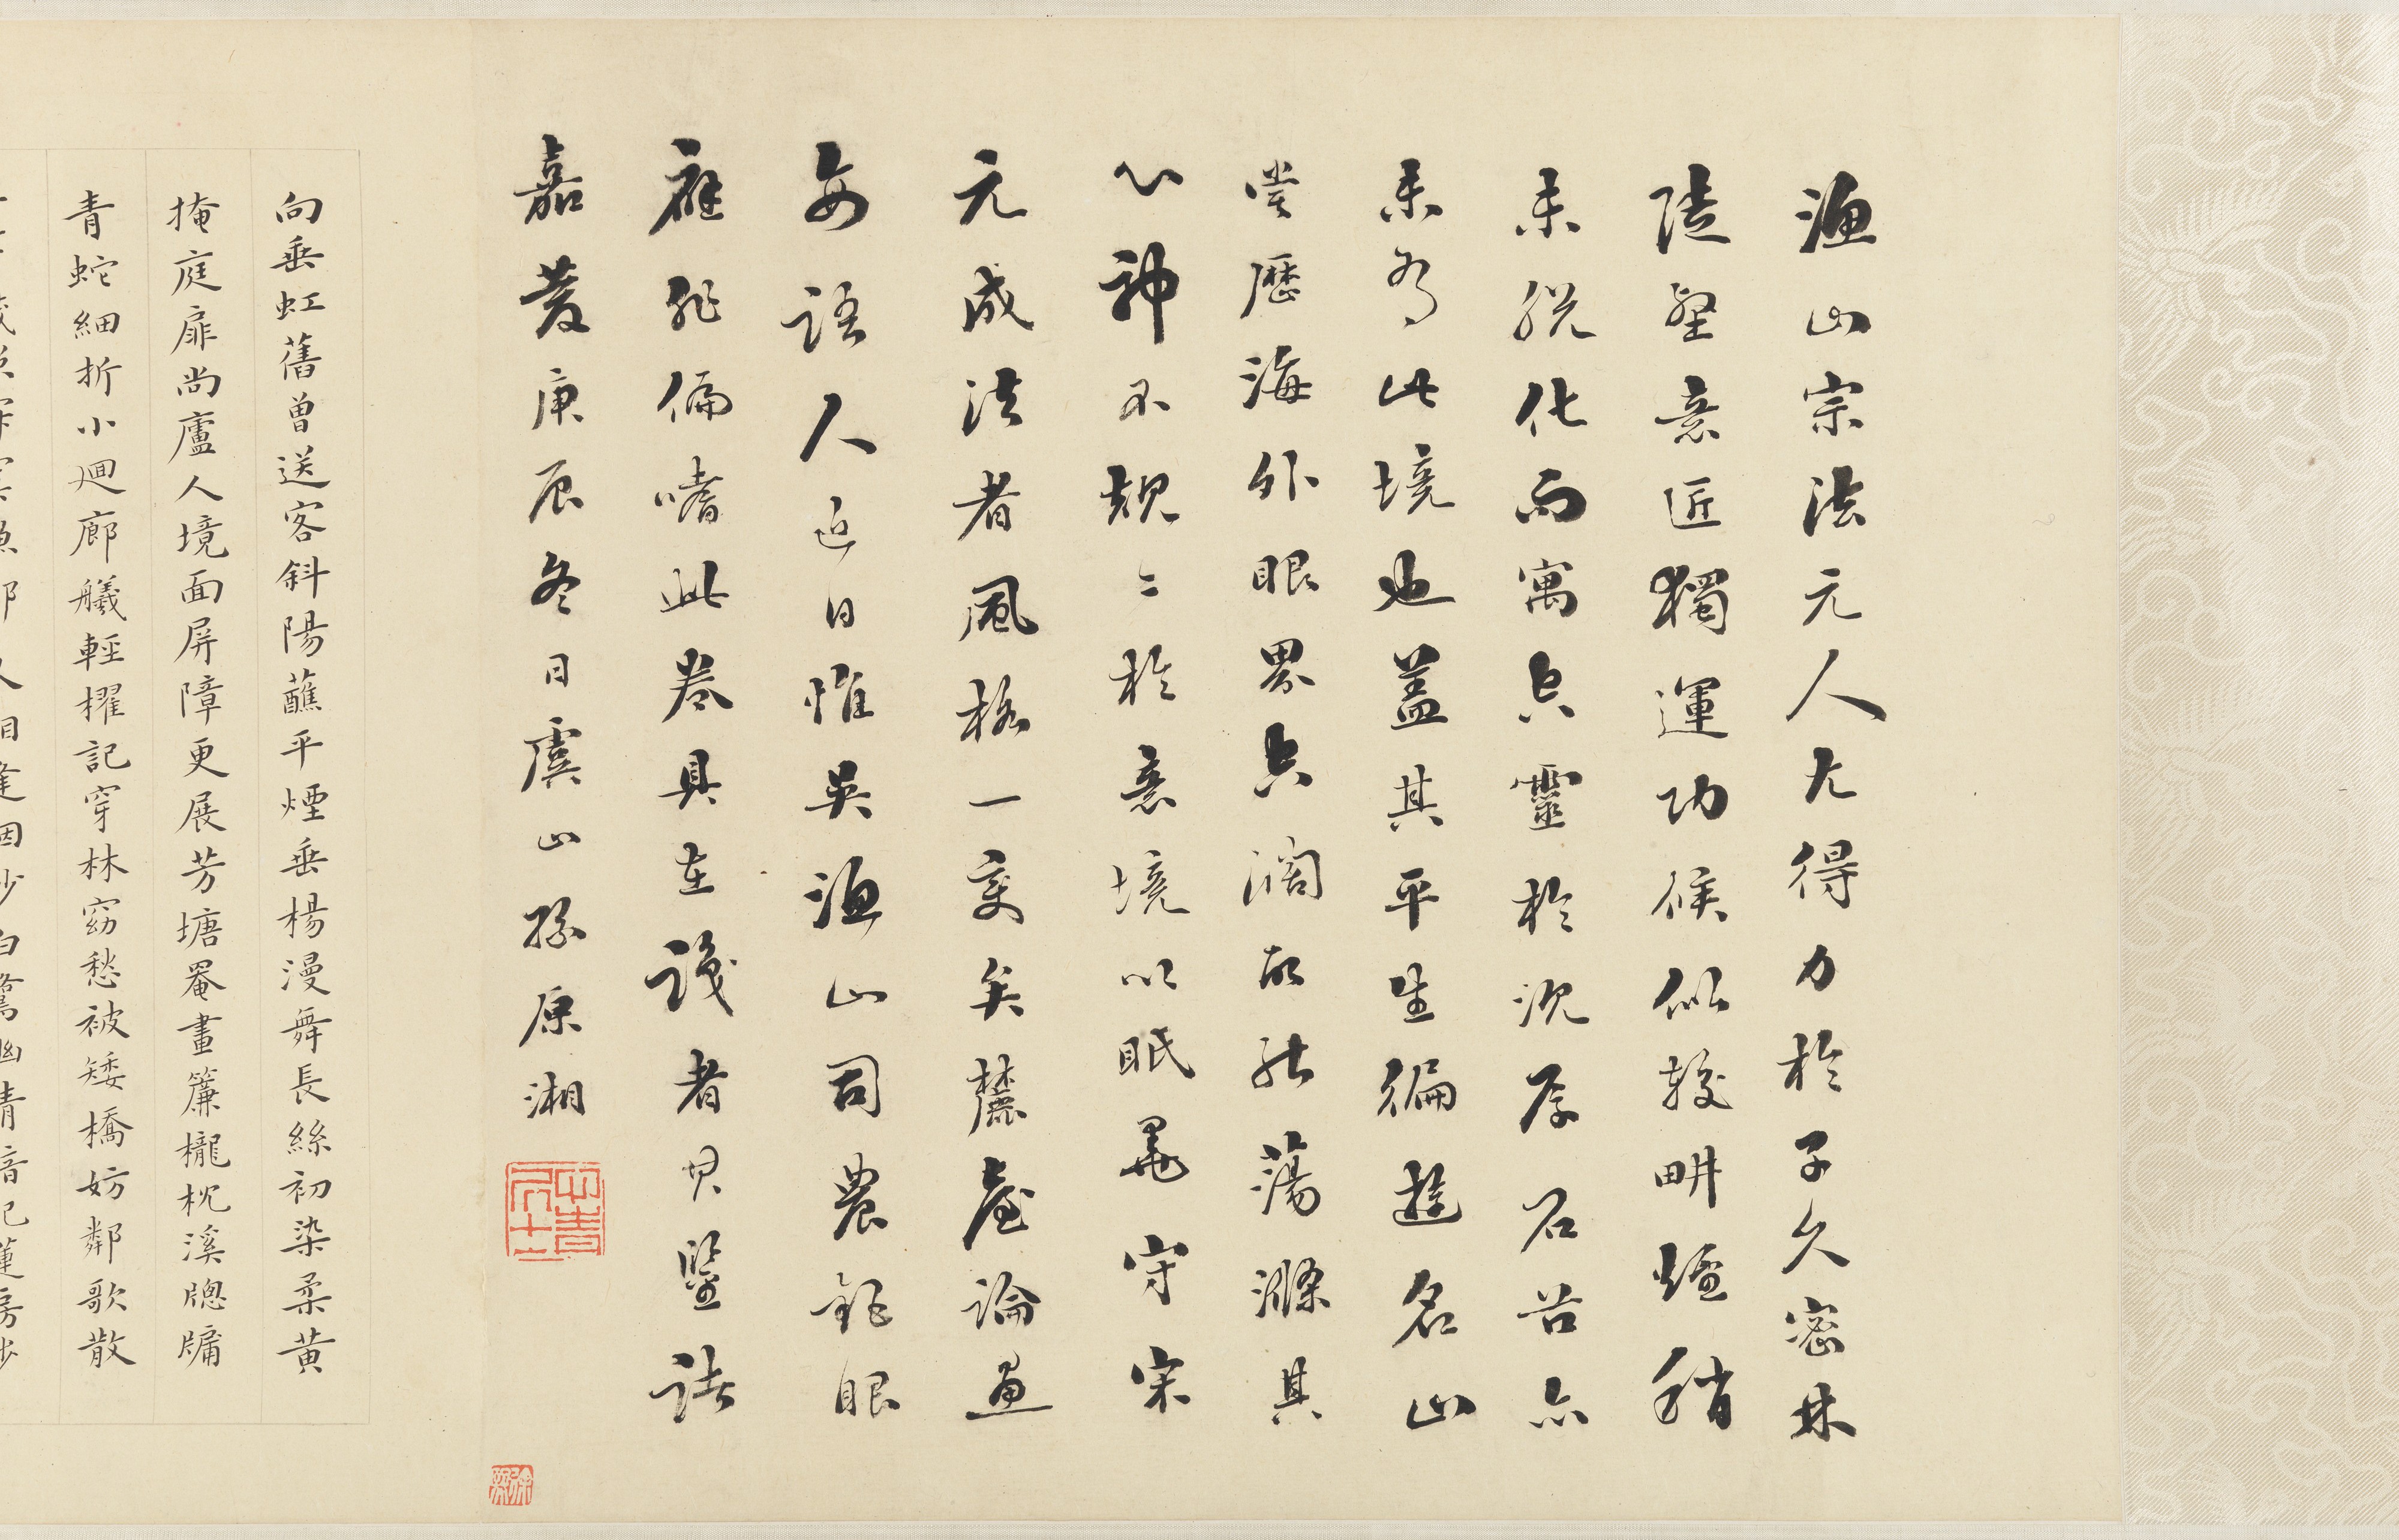 漁山宗法元人尤得力於子久密林
陡壑意匠獨運功候似較畊煙稍
未脫化而寓空靈於沉厚石谷亦
未有此境也蓋其平生徧遊名山
嘗歷海外眼界空濶故能蕩滌其
心神不規〻於意境以眡毫守宋
元成法者風格一變矣麓臺論畫
每語人近日惟吳漁山司農銘眼
嗜此卷具在識者其鑒諸
嘉慶庚辰冬日虞山孫原湘
向垂虹舊曾送客斜陽蘸平煙垂楊漫舞長絲初染柔黃
掩庭扉尚廬人境面屏障更展芳塘罨畫簾櫳枕溪牕牖
青蛇細折小廻廊艤輕櫂記穿林窈愁被矮橋妨鄰歌散